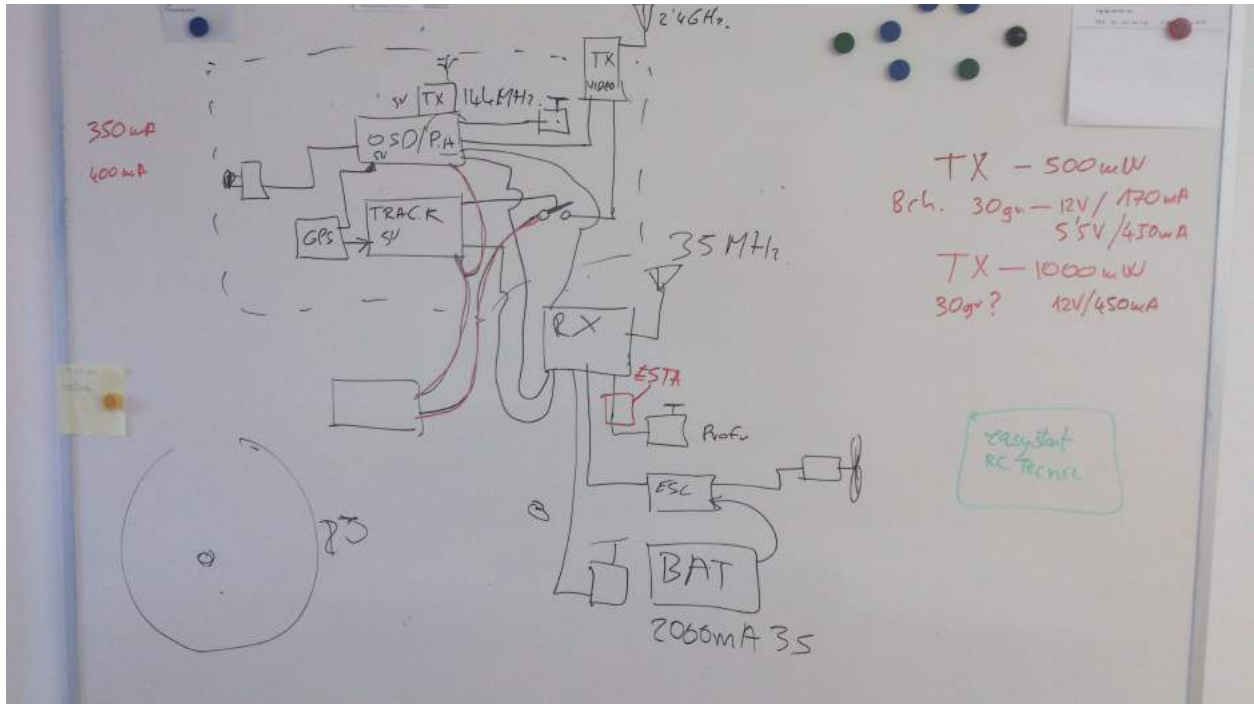 2'4GHz.
TX
VIDEO
5V TX 144MHz.
OSD/P.A
5V
350mA
400mA
TRACK
5V
GPS
35 MHz.
RX
ESTA
Profu
ESC
BAT
2000mA 3S
TX - 500mW
8ch. 30gr - 12V/170mA
5'5V/450mA
TX - 1000mW
30gr? 12V/450mA
easystar
RC Tecnic